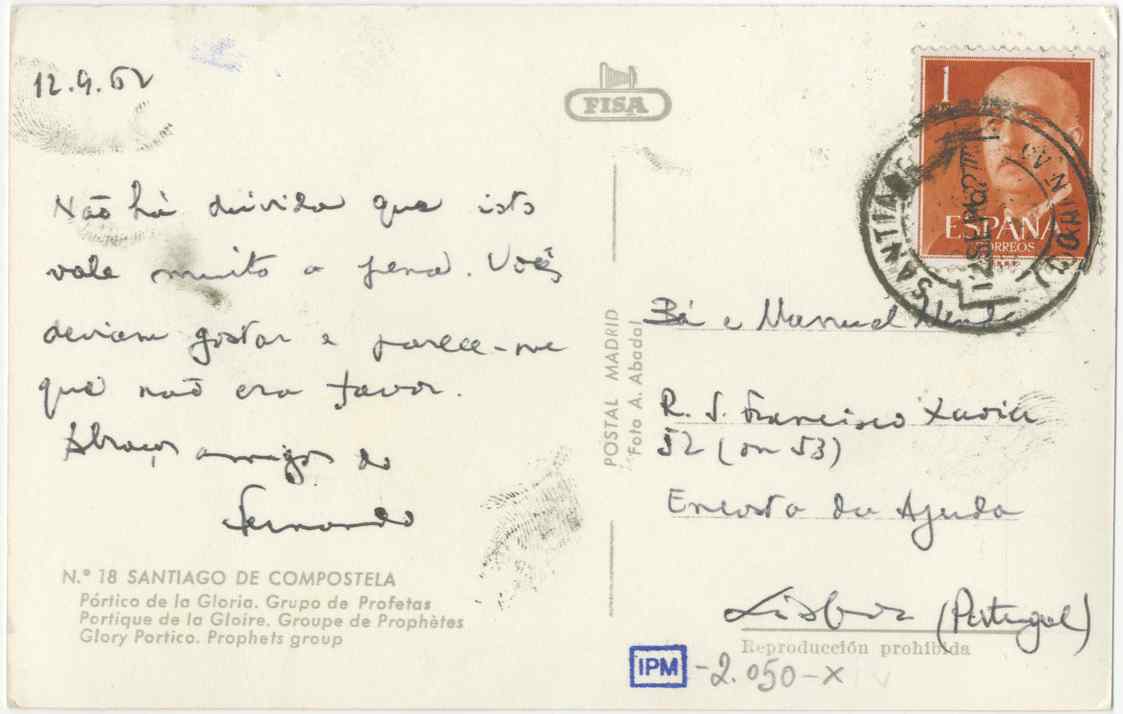 12.9.62
Não há dúvida que isto
vale muito a pena. Vocês
deviam gostar e parece-me
que não era favor.
Abraços amigos do
Fernando
N.º 18 SANTIAGO DE COMPOSTELA
Pórtico de la Gloria. Grupo de Profetas
Portique de la Gloire. Groupe de Prophètes
Glory Portico. Prophets group
FISA
POSTAL MADRID
Foto A. Abadal
1
ESPAÑA
CORREOS
SANTIAGO
Bá e Manuel
R. S. Francisco Xavier
52 (ou 53)
Encosta da Ajuda
Lisboa (Portugal)
Reproducción prohibida
IPM -2.050-X